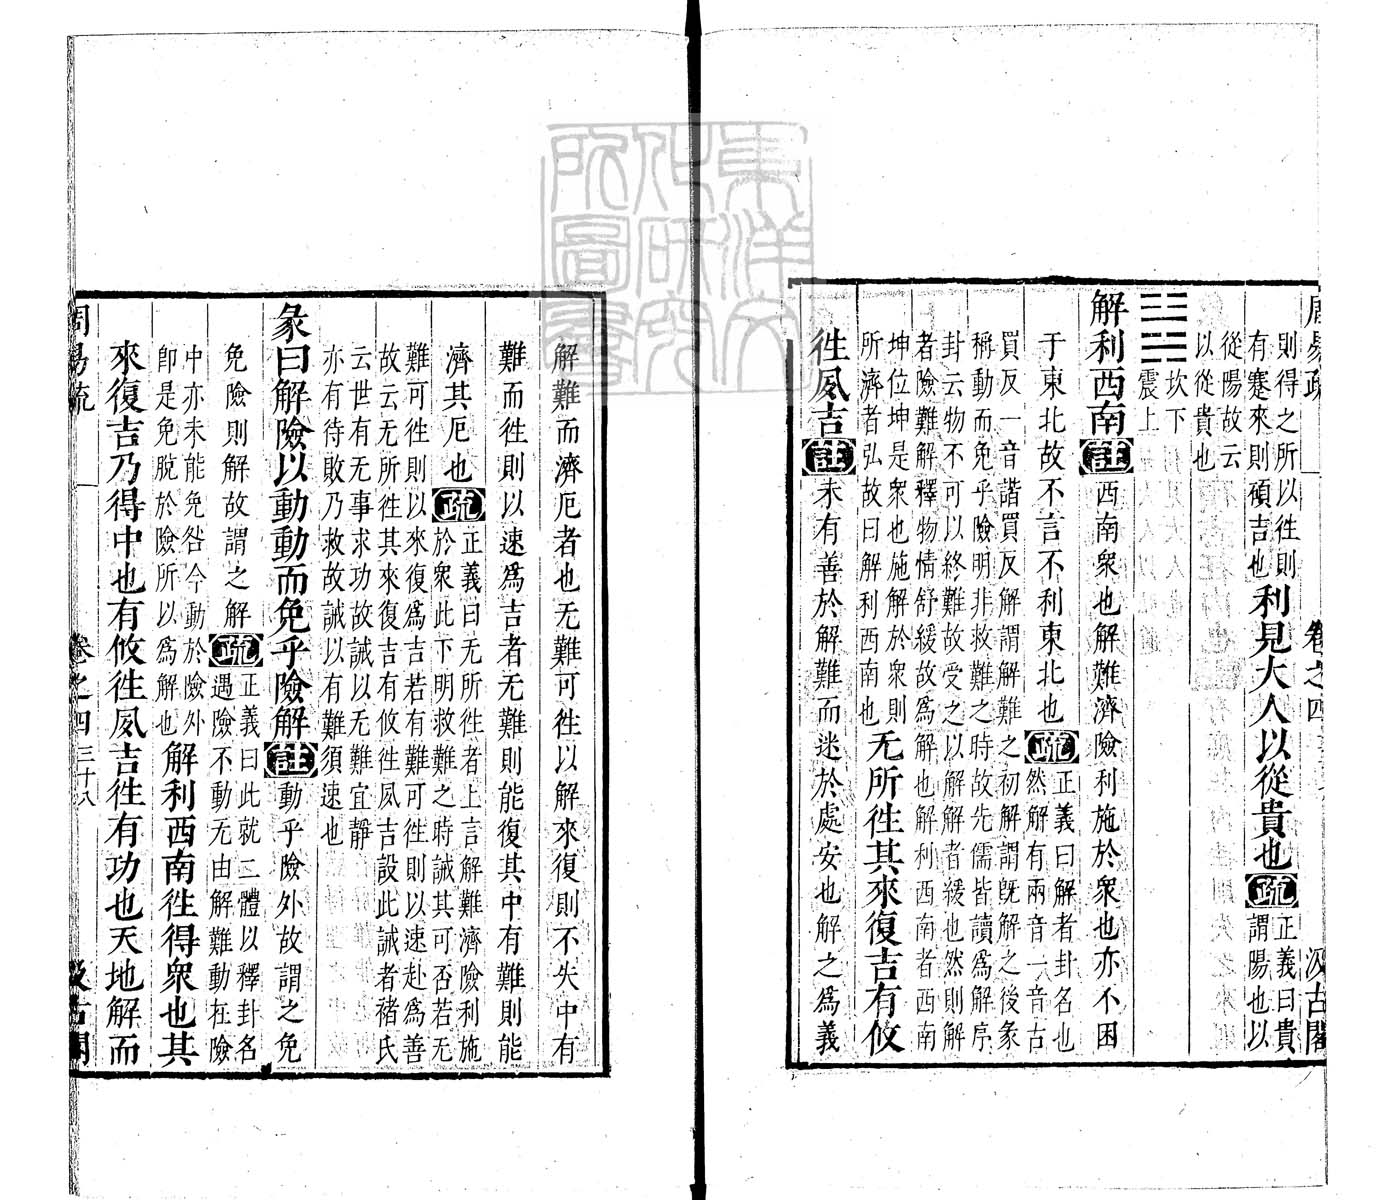 周易疏 卷之四 汲古閣
則得之所以徃則
有蹇來則碩吉也
利見大人以從貴也疏
正義曰貴
謂陽也以
從陽故云
以從貴也
䷧
坎下
震上
解利西南註西南衆也解難濟險利施於衆也亦不困
于東北故不言不利東北也疏
正義曰解者卦名也
然解有兩音一音古
買反一音諧買反解謂解難之初解謂旣解之後彖
稱動而免乎險明非救難之時故先儒皆讀爲解序
卦云物不可以終難故受之以解解者緩也然則解
者險難解釋物情舒緩故爲解也解利西南者西南
坤位坤是衆也施解於衆則
所濟者弘故曰解利西南也
无所徃其來復吉有攸
徃夙吉註未有善於解難而迷於處安也解之爲義
解難而濟厄者也无難可徃以解來復則不失中有
難而徃則以速爲吉者无難則能復其中有難則能
濟其厄也疏
正義曰无所徃者上言解難濟險利施
於衆此下明救難之時誡其可否若无
難可徃則以來復爲吉若有難可徃則以速赴爲善
故云无所徃其來復吉有攸徃夙吉設此誡者褚氏
云世有无事求功故誡以无難宜靜
亦有待敗乃救故誡以有難須速也
彖曰解險以動動而免乎險解註動乎險外故謂之免
免險則解故謂之解疏
正義曰此就二體以釋卦名
遇險不動无由解難動在險
中亦未能免咎今動於險外
卽是免脫於險所以爲解也
解利西南徃得衆也其
來復吉乃得中也有攸徃夙吉徃有功也天地解而
周易疏 卷之四 三十八 汲古閣
東洋文化研究所圖書